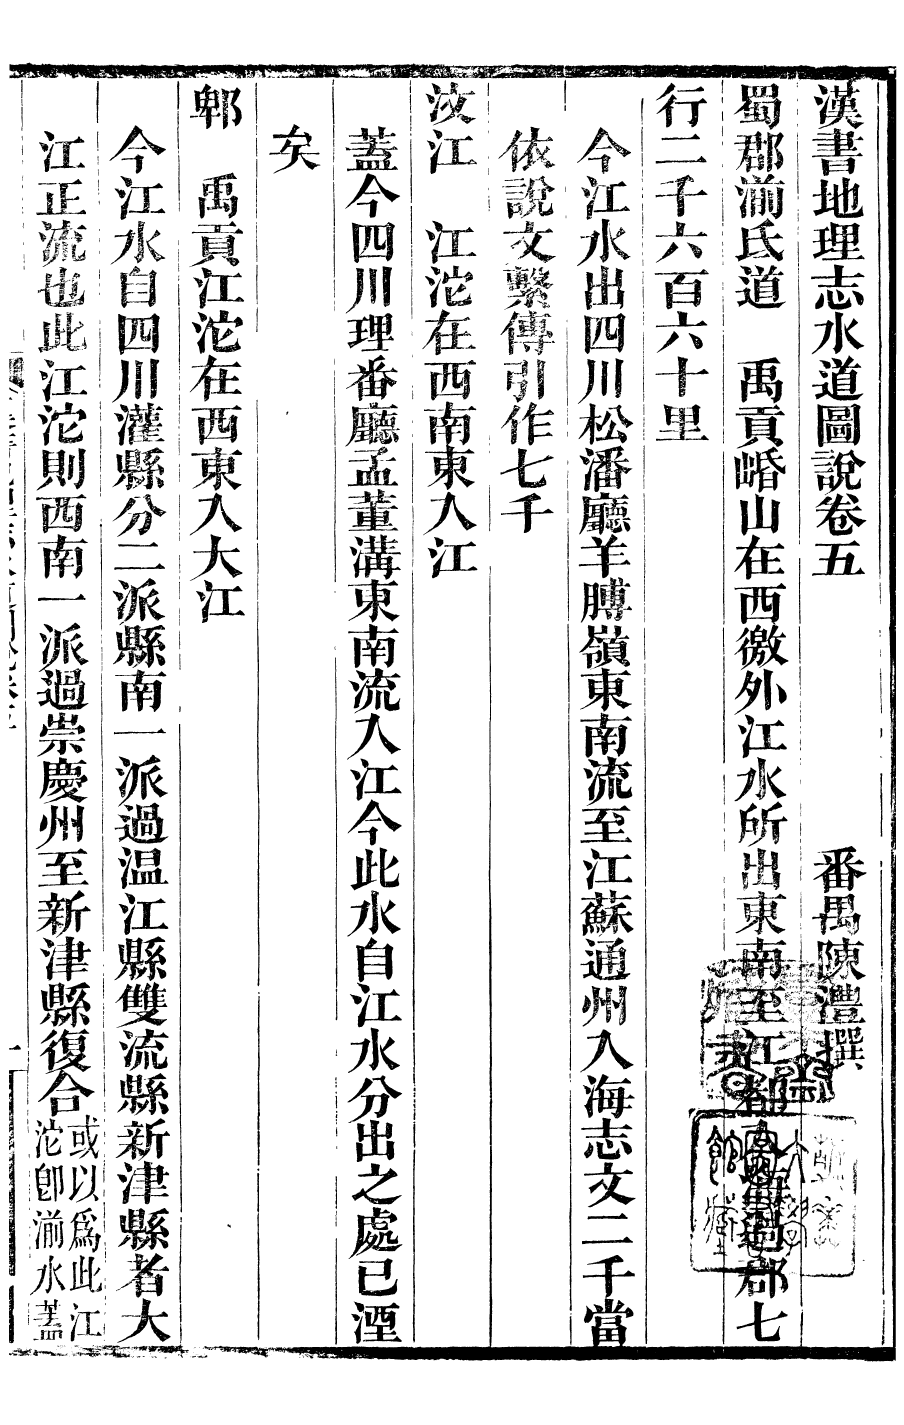 漢書地理志水道圖說卷五　番禺陳澧撰
蜀郡湔氐道　禹貢崏山在西徼外江水所出東南至江都入海過郡七
行二千六百六十里
今江水出四川松潘廳羊膊嶺東南流至江蘇通州入海志文二千當
依說文繫傳引作七千
汶江　江沱在西南東入江
蓋今四川理番廳孟董溝東南流入江今此水自江水分出之處已湮
矣
郫　禹貢江沱在西東入大江
今江水自四川灌縣分二派縣南一派過温江縣雙流縣新津縣者大
江正流也此江沱則西南一派過崇慶州至新津縣復合或以爲此江
沱卽湔水蓋